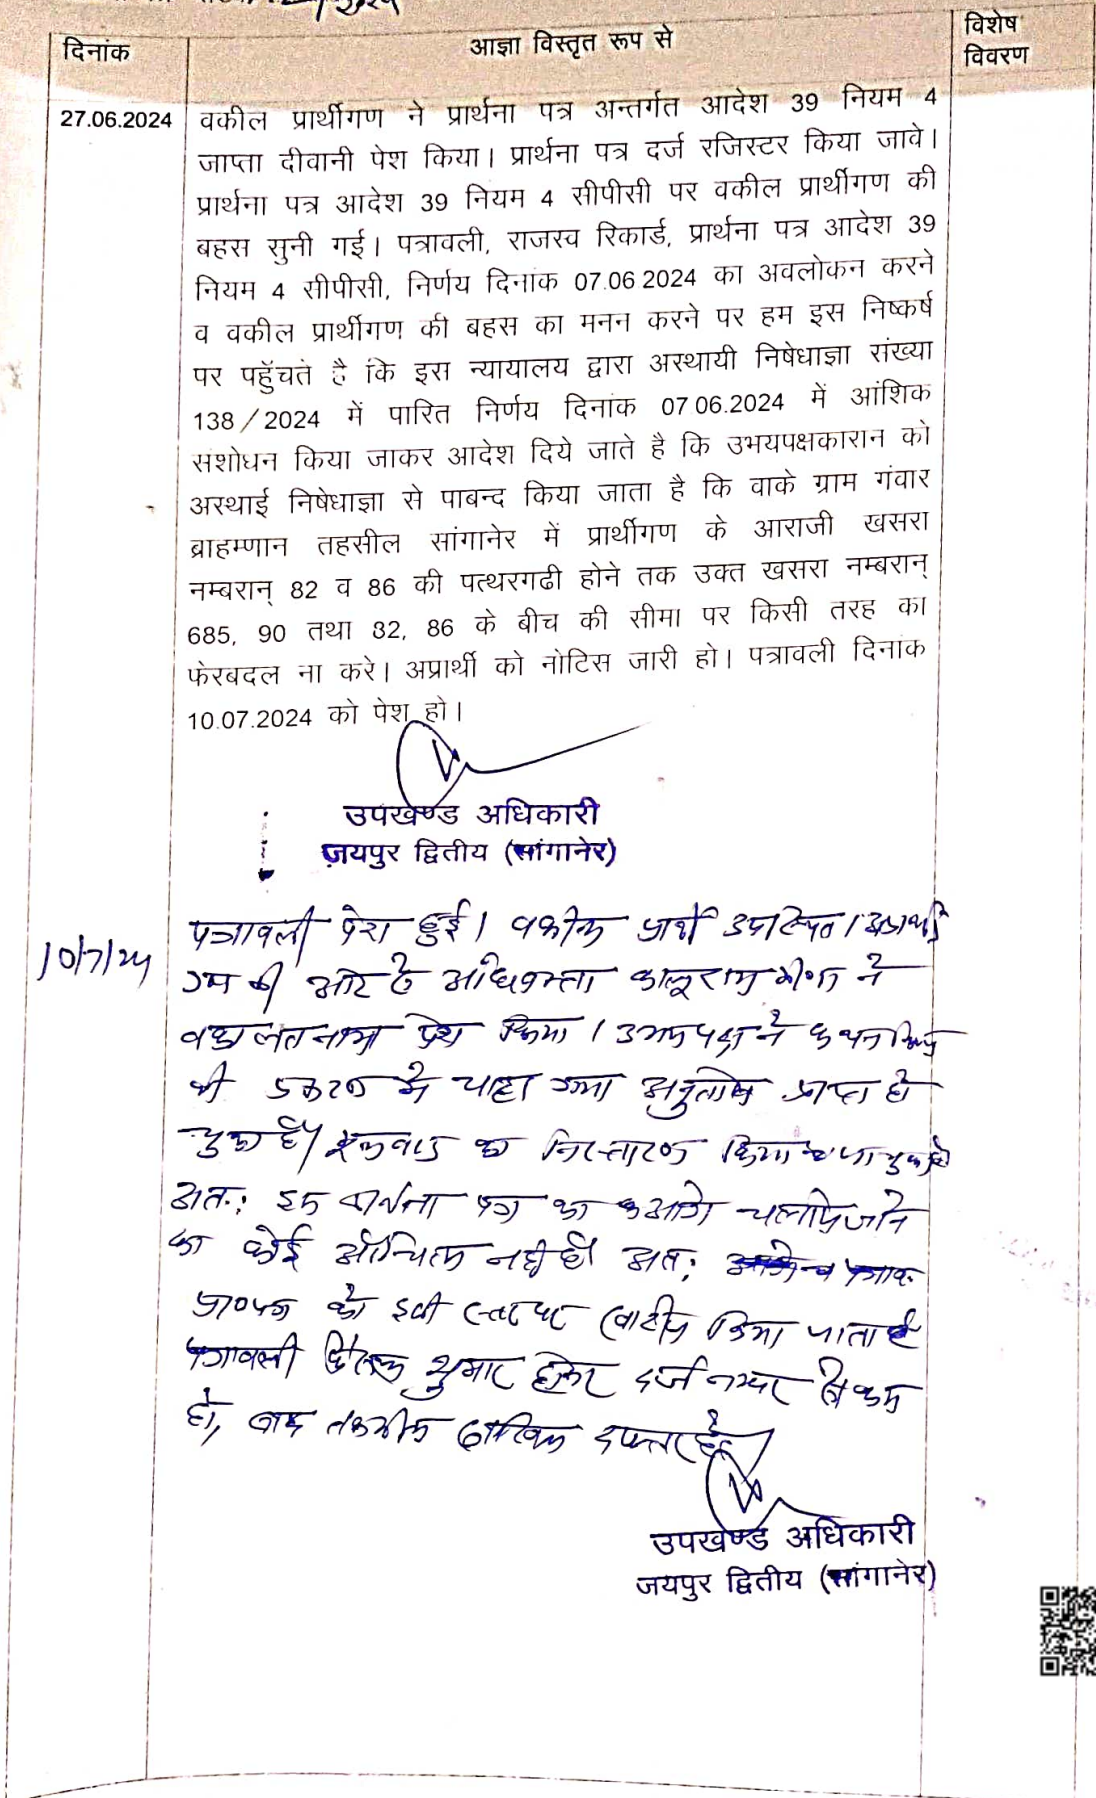 दिनांक
आज्ञा विस्तृत रूप से
विशेष
विवरण
27.06.2024
वकील प्रार्थीगण ने प्रार्थना पत्र अन्तर्गत आदेश 39 नियम 4
जाप्ता दीवानी पेश किया। प्रार्थना पत्र दर्ज रजिस्टर किया जावे।
प्रार्थना पत्र आदेश 39 नियम 4 सीपीसी पर वकील प्रार्थीगण की
बहस सुनी गई। पत्रावली, राजस्व रिकार्ड, प्रार्थना पत्र आदेश 39
नियम 4 सीपीसी, निर्णय दिनांक 07.06.2024 का अवलोकन करने
व वकील प्रार्थीगण की बहस का मनन करने पर हम इस निष्कर्ष
पर पहुॅचते है कि इस न्यायालय द्वारा अस्थायी निषेधाज्ञा संख्या
138/2024 में पारित निर्णय दिनांक 07.06.2024 में आंशिक
संशोधन किया जाकर आदेश दिये जाते है कि उभयपक्षकारान को
अस्थाई निषेधाज्ञा से पाबन्द किया जाता है कि वाके ग्राम गंवार
ब्राहम्णान तहसील सांगानेर में प्रार्थीगण के आराजी खसरा
नम्बरान् 82 व 86 की पत्थरगढी होने तक उक्त खसरा नम्बरान्
685, 90 तथा 82, 86 के बीच की सीमा पर किसी तरह का
फेरबदल ना करे। अप्रार्थी को नोटिस जारी हो। पत्रावली दिनांक
10.07.2024 को पेश हो।
उपखण्ड अधिकारी
जयपुर द्वितीय (सांगानेर)
10/7/24
पत्रावली पेश हुई। वकील प्रार्थी उपस्थित। अप्रार्थी
गण की ओर से अधिवक्ता कालूराम मीणा ने
वकालतनामा पेश किया। उभयपक्ष ने कथन किया
की प्रकरण में चाहा गया अनुतोष प्राप्त हो
चुका है। मूलवाद का निस्तारण किया जा चुका है
अतः इस प्रार्थना पत्र का आगे चलाये जाने
का कोई औचित्य नहीं है। अतः
प्रा०पत्र को इसी स्तर पर खारीज किया जाता है
पत्रावली फैसल शुमार होकर दर्ज नम्बर से कम
हो, बाद तकमील दाखिल दफ्तर हो।
उपखण्ड अधिकारी
जयपुर द्वितीय (सांगानेर)